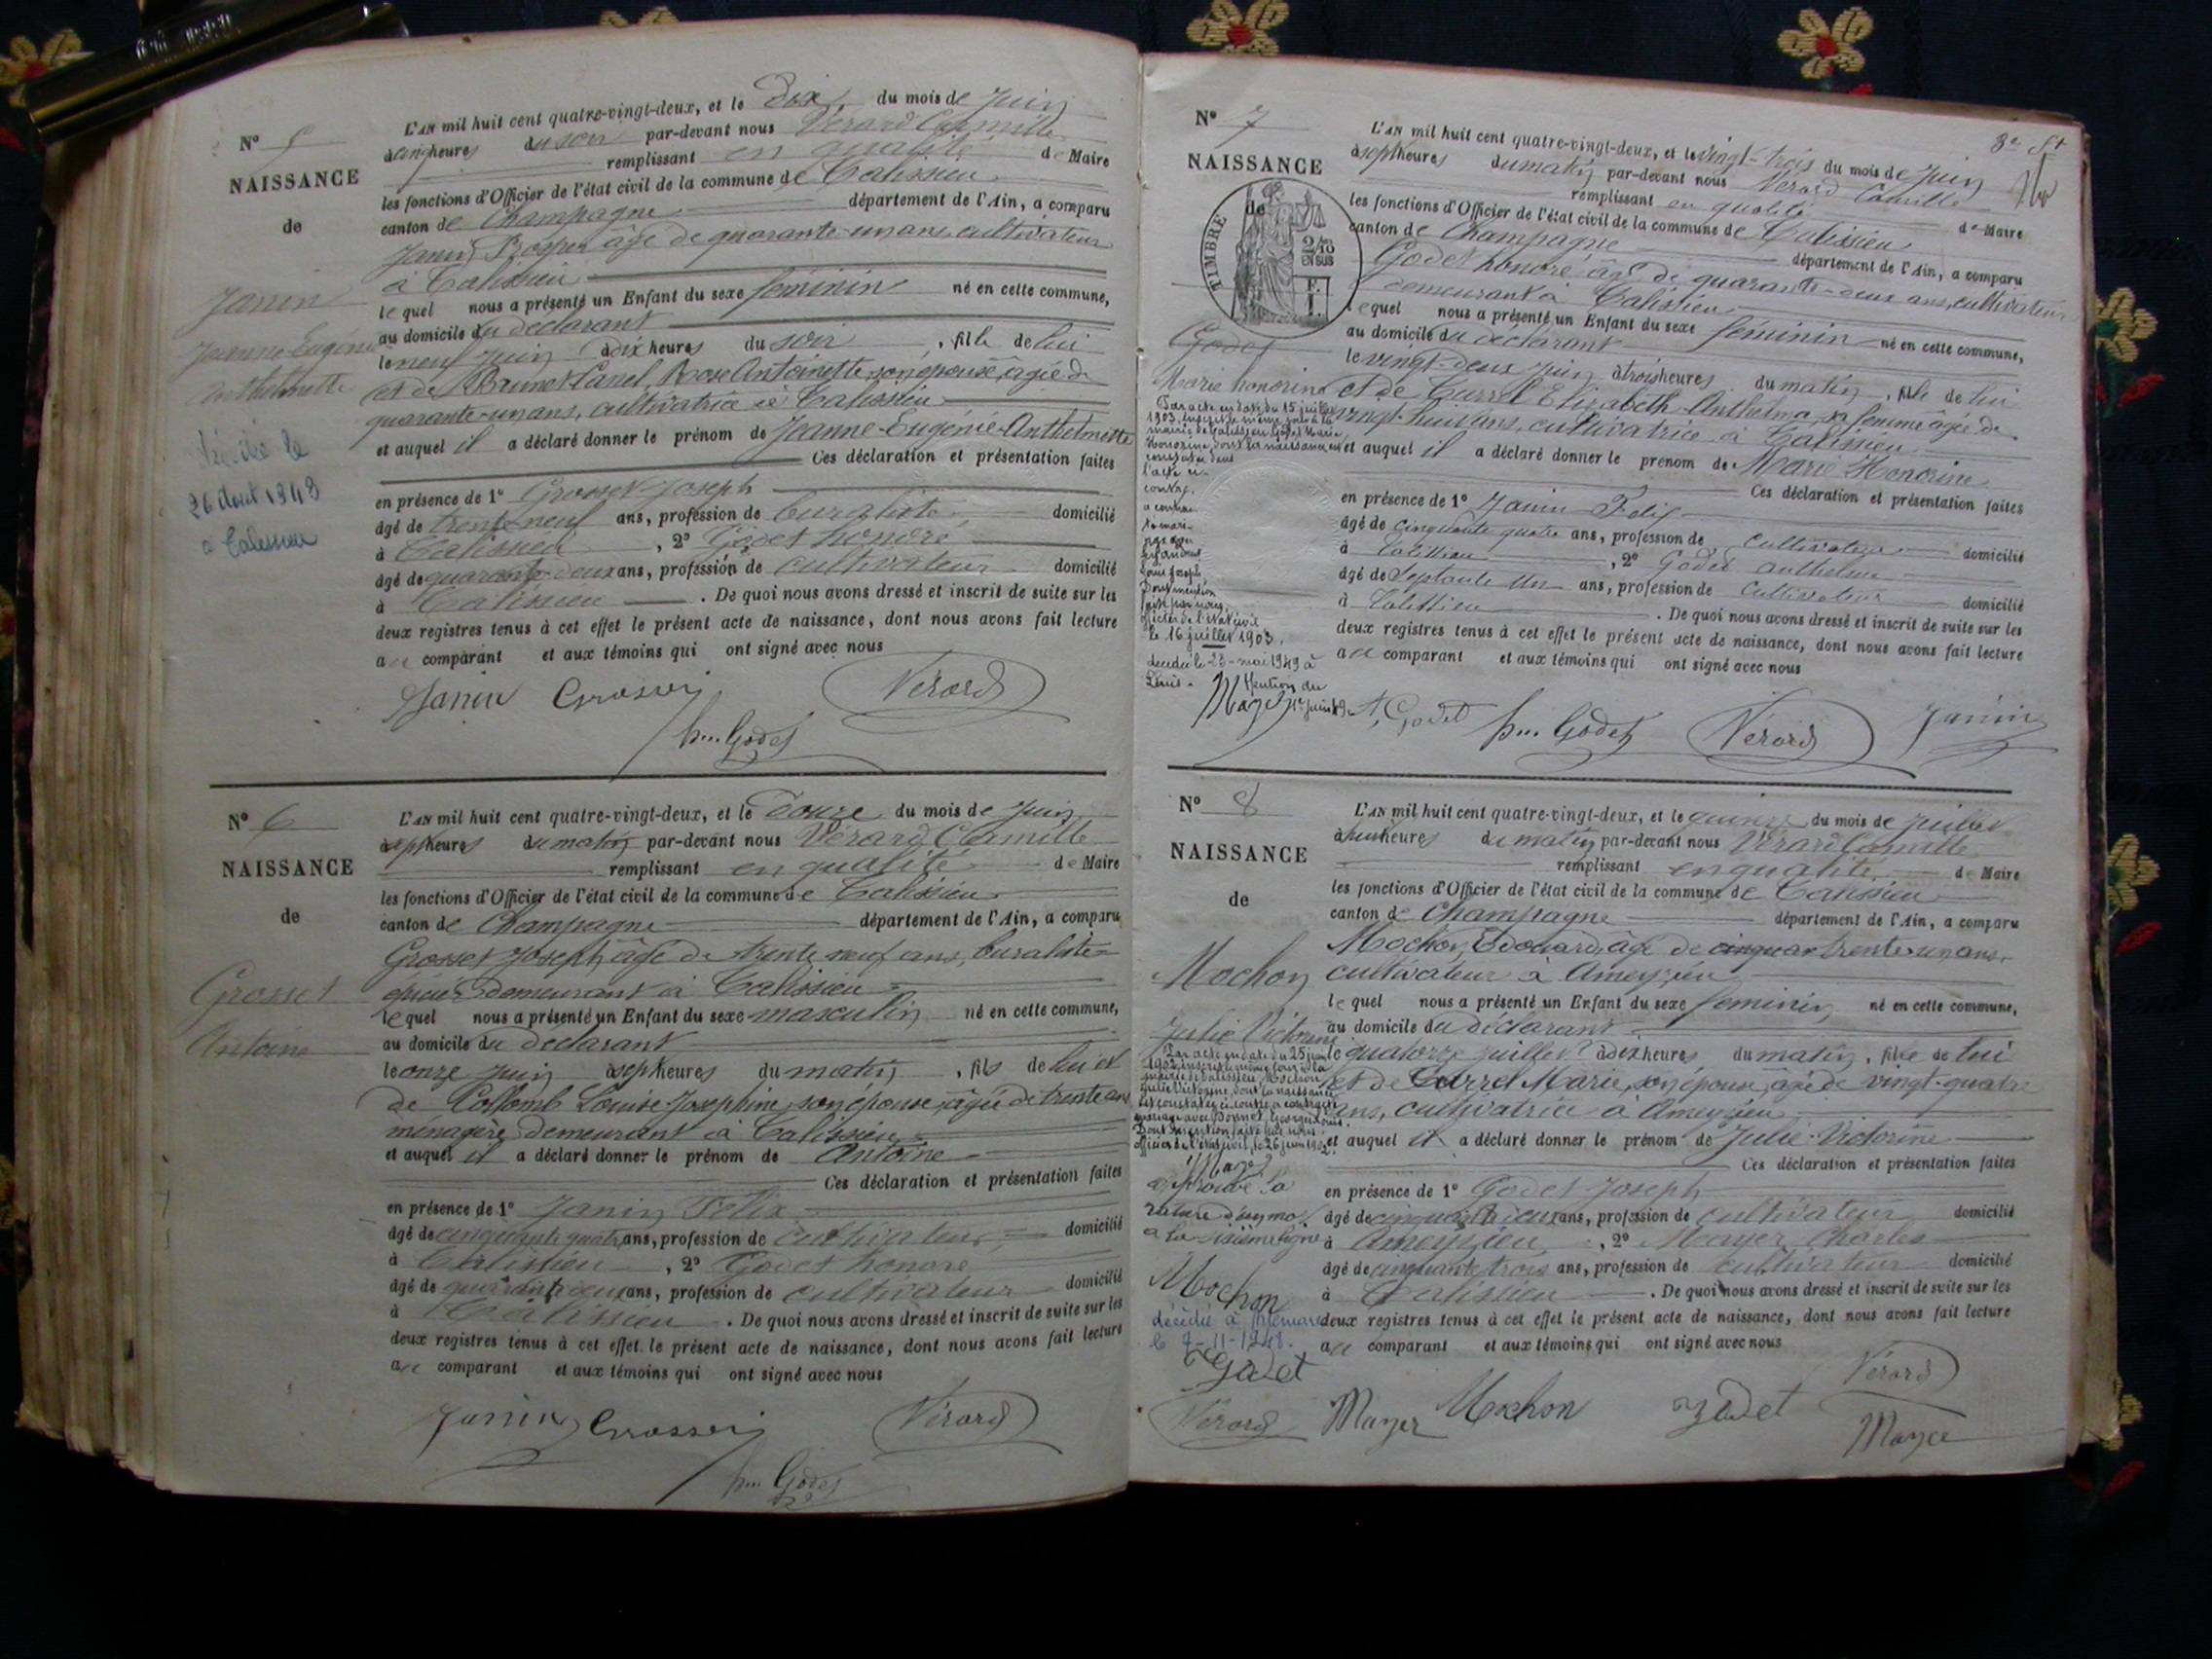 N° 5
NAISSANCE
de
Janin
Jeanne Eugénie
Anthelmette
décédée le
26 Août 1948
à Talissieu
L'AN mil huit cent quatre-vingt-deux, et le Dix du mois de Juin
à cinq heures du soir par-devant nous Vérard Camille
remplissant en qualité de Maire
les fonctions d'Officier de l'état civil de la commune de Talissieu
canton de Champagne département de l'Ain, a comparu
Janin Prosper âgé de quarante-un ans cultivateur
à Talissieu
lequel nous a présenté un Enfant du sexe féminin né en cette commune,
au domicile du déclarant
le neuf Juin à dix heures du soir, fille de lui
et de Brunet Canel, Rose Antoinette, son épouse, agée de
quarante-un ans, cultivatrice à Talissieu
et auquel il a déclaré donner le prénom de Jeanne-Eugénie-Anthelmette
Ces déclaration et présentation faites
en présence de 1° Grosset Joseph
âgé de trente-neuf ans, profession de buraliste domicilié
à Talissieu, 2° Godet honoré
âgé de quarante-deux ans, profession de cultivateur domicilié
à Talissieu. De quoi nous avons dressé et inscrit de suite sur les
deux registres tenus à cet effet le présent acte de naissance, dont nous avons fait lecture
au comparant et aux témoins qui ont signé avec nous
Janin Grosset Vérard
hre Godet
N° 6
NAISSANCE
de
Grosset
Antoine
L'AN mil huit cent quatre-vingt-deux, et le Douze du mois de Juin
à sept heures du matin par-devant nous Vérard Camille
remplissant en qualité de Maire
les fonctions d'Officier de l'état civil de la commune de Talissieu
canton de Champagne département de l'Ain, a comparu
Grosset Joseph âgé de trente neuf ans, buraliste-
épicier demeurant à Talissieu
lequel nous a présenté un Enfant du sexe masculin né en cette commune,
au domicile du déclarant
le onze Juin à sept heures du matin, fils de lui et
de Collomb Louise Joséphine, son épouse, âgée de trente ans
ménagère demeurant à Talissieu
et auquel il a déclaré donner le prénom de Antoine
Ces déclaration et présentation faites
en présence de 1° Janin Félix
âgé de cinquante quatre ans, profession de cultivateur domicilié
à Talissieu, 2° Godet honoré
âgé de quarante deux ans, profession de cultivateur domicilié
à Talissieu. De quoi nous avons dressé et inscrit de suite sur les
deux registres tenus à cet effet le présent acte de naissance, dont nous avons fait lecture
au comparant et aux témoins qui ont signé avec nous
Janin Grosset Vérard
hre Godet
N° 7
NAISSANCE
de
TIMBRE
2/10
EN SUS
Godet
Marie honorine
Par acte en date du 15 juillet
1903, inscrit le même jour à la
mairie de Talissieu, Godet Marie
Honorine, dont la naissance est
constatée dans
l'acte ci-
contre,
a contracté
mariage
avec
Louis Joseph,
Dont mention
faite par nous,
officier de l'état civil
le 16 juillet 1903.
décédée le 23 mai 1949 à
Mention du
1er juin 49
3e ft
L'AN mil huit cent quatre-vingt-deux, et le vingt-trois du mois de Juin
à sept heures du matin par-devant nous Vérard Camille
remplissant en qualité de Maire
les fonctions d'Officier de l'état civil de la commune de Talissieu
canton de Champagne département de l'Ain, a comparu
Godet honoré âgé de quarante-deux ans, cultivateur
demeurant à Talissieu
lequel nous a présenté un Enfant du sexe féminin né en cette commune,
au domicile du déclarant
le vingt-deux Juin à trois heures du matin, fille de lui
et de Currel Elizabeth Anthelma, sa femme âgée de
vingt-huit ans, cultivatrice à Talissieu
et auquel il a déclaré donner le prenom de Marie Honorine
Ces déclaration et présentation faites
en présence de 1° Janin Felix
âgé de cinquante quatre ans, profession de cultivateur domicilié
à Talissieu, 2° Godet anthelme
âgé de Septante Un ans, profession de Cultivateur domicilié
à Talissieu. De quoi nous avons dressé et inscrit de suite sur les
deux registres tenus à cet effet le présent acte de naissance, dont nous avons fait lecture
au comparant et aux témoins qui ont signé avec nous
A. Godet hre Godet Vérard Janin
N° 8
NAISSANCE
de
Mochon
Julie Victorine
Par acte en date du 25 juin
1902, inscrit le même jour à la
mairie de Talissieu, Mochon
Julie Victorine, dont la naissance
est constatée ci-contre, a contracté
mariage avec Bonnet, Georges Louis.
Dont mention faite par nous
officier de l'état civil, le 26 juin 1902.
approuvé la
rature d'un mot
à la sixième ligne
Mochon
décédée à
le 7-11-1948.
Godet
Vérard
L'AN mil huit cent quatre-vingt-deux, et le quinze du mois de Juillet
à huit heures du matin par-devant nous Vérard Camille
remplissant en qualité de Maire
les fonctions d'Officier de l'état civil de la commune de Talissieu
canton de Champagne département de l'Ain, a comparu
Mochon, Edouard, âgé de cinquan trente-un ans,
cultivateur à Ameyzieu
lequel nous a présenté un Enfant du sexe féminin né en cette commune,
au domicile du déclarant
le quatorze juillet à dix heures du matin, fille de lui
et de Currel Marie, son épouse, âgée de vingt-quatre
ans, cultivatrice à Ameyzieu
et auquel il a déclaré donner le prénom de Julie-Victorine
Ces déclaration et présentation faites
en présence de 1° Godet Joseph
âgé de cinquante deux ans, profession de cultivateur domicilié
à Ameyzieu, 2° Mayer Charles
âgé de cinquante trois ans, profession de cultivateur domicilié
à Talissieu. De quoi nous avons dressé et inscrit de suite sur les
deux registres tenus à cet effet le présent acte de naissance, dont nous avons fait lecture
au comparant et aux témoins qui ont signé avec nous
Mayer Mochon Godet Vérard